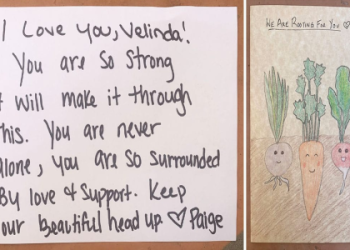 I Love You, Velinda!
You are so strong
it will make it through
this. You are never
alone, you are so surrounded
By love & support. Keep
our Beautiful head up ♡ Paige
We Are Rooting For You ♡